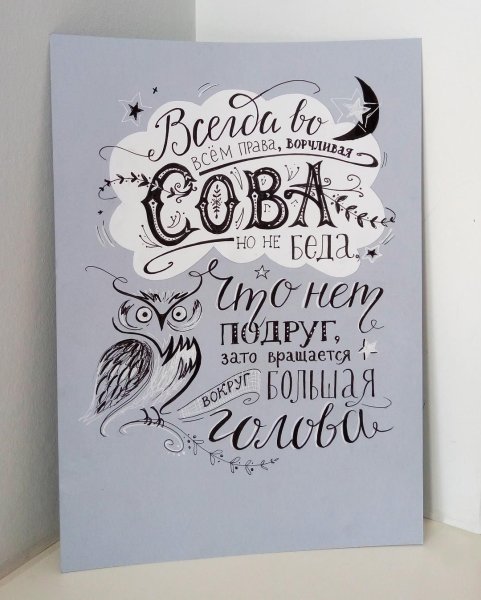 Всегда во
всём права, ворчливая
СОВА
но не беда.
Что нет
подруг,
зато вращается
вокруг
большая
голова